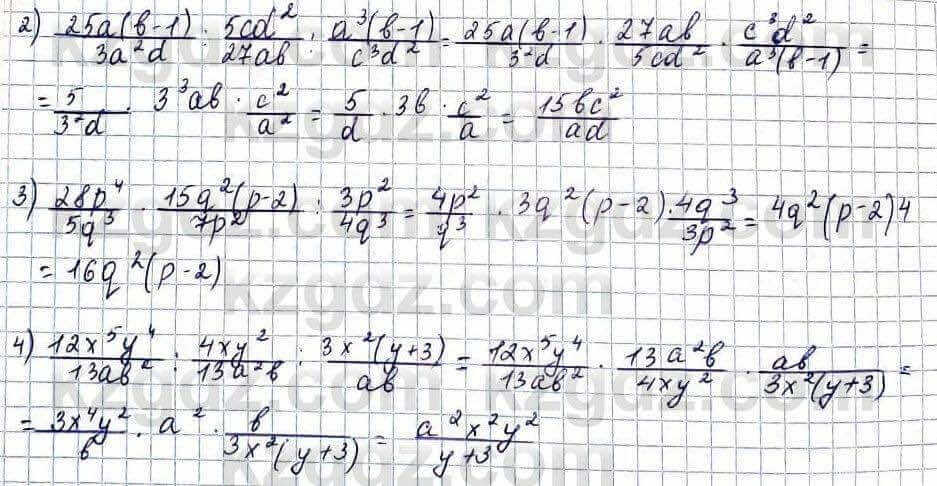 2) 25a(b-1)/3a²d : 5cd²/27ab : a³(b-1)/c³d² = 25a(b-1)/3²d · 27ab/5cd² · c³d²/a³(b-1) =
= 5/3²d · 3³ab · c²/a² = 5/d · 3b · c²/a = 15bc²/ad
3) 28p⁴/5q³ · 15q²(p-2)/7p² : 3p²/4q³ = 4p²/q³ · 3q²(p-2) · 4q³/3p² = 4q²(p-2)4
= 16q²(p-2)
4) 12x⁵y⁴/13ab² : 4xy²/13a²b : 3x²(y+3)/ab = 12x⁵y⁴/13ab² · 13a²b/4xy² · ab/3x²(y+3) =
= 3x⁴y²/b · a² · b/3x²(y+3) = a²x²y²/y+3
kzgdz.com